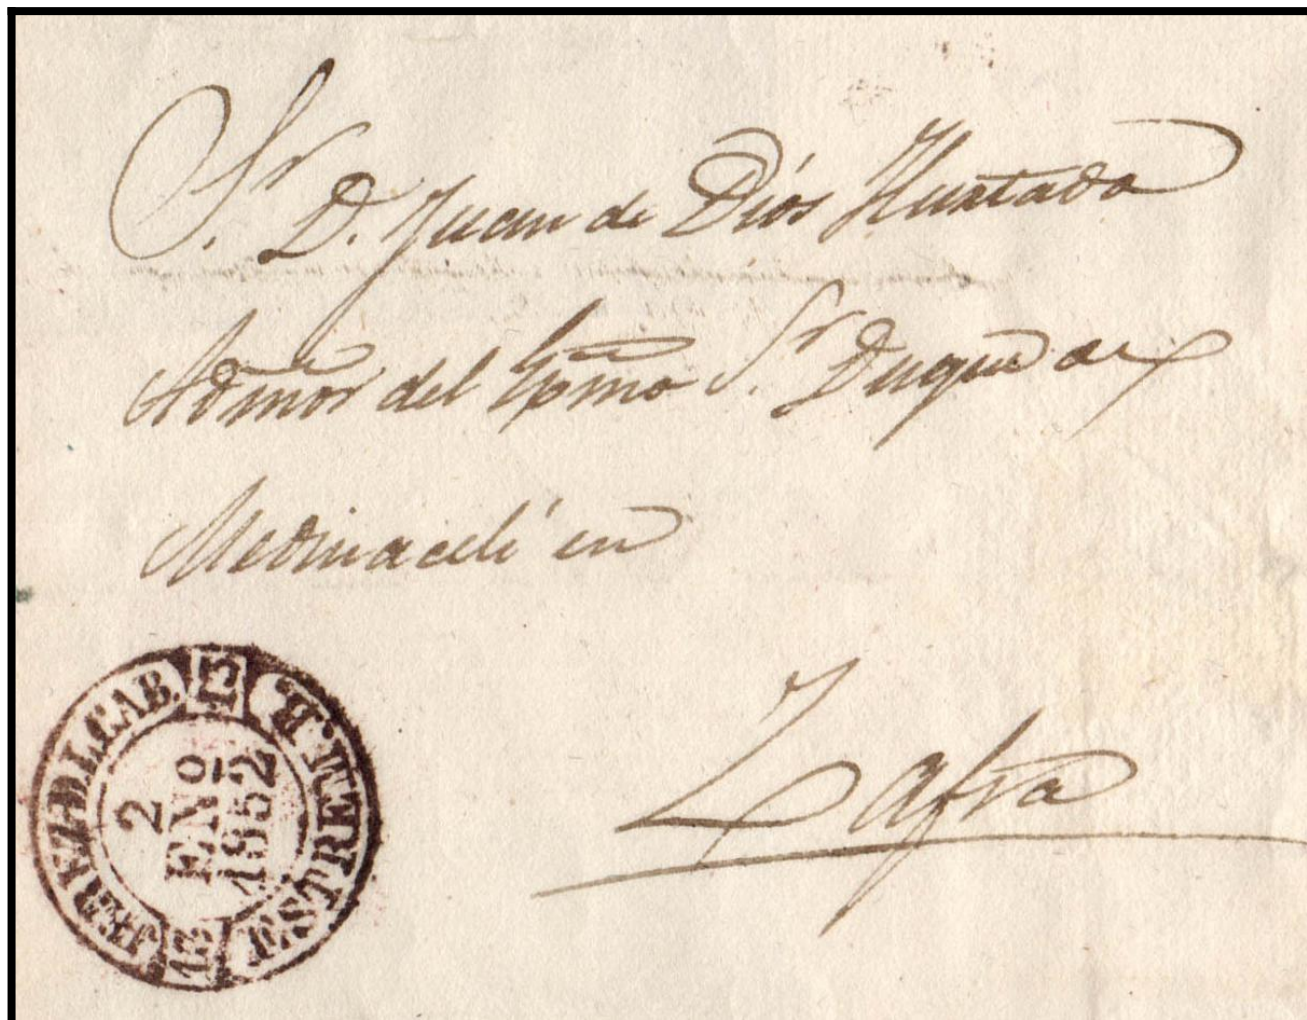 Sr. D. Juan de Dios Hurtado
Admor del Exmo Sr. Duque de
Medinaceli en
Zafra
JEREZ D.L. CAB.
2
ENO
1852